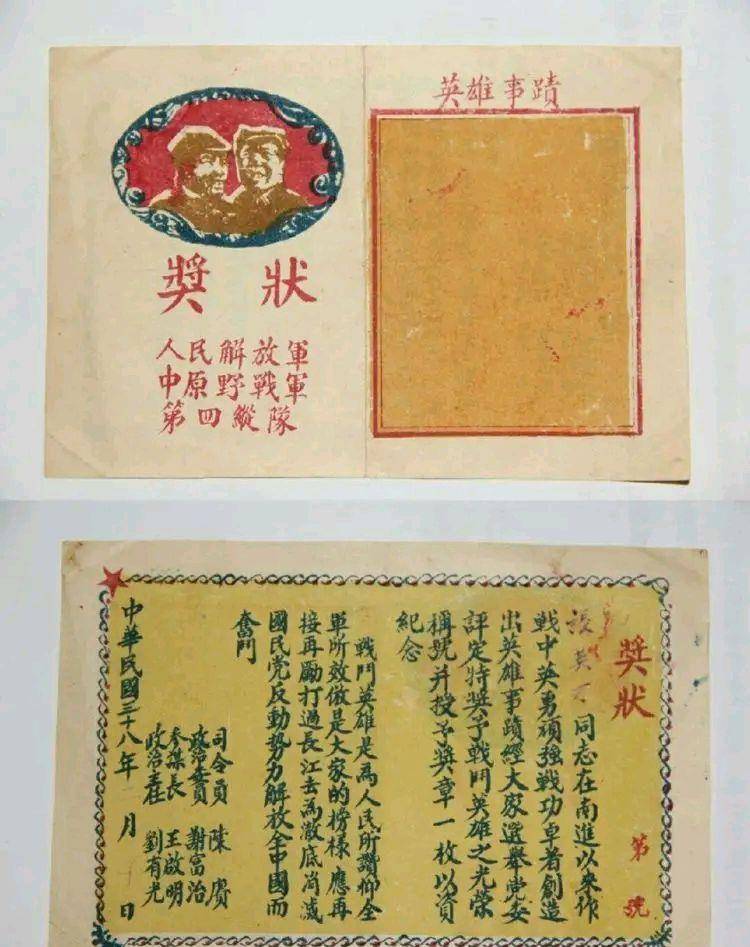 獎狀
人民解放軍
中原野戰軍
第四縱隊
英雄事蹟
獎狀
第 號
同志在南進以來作
戰中英勇頑強戰功卓著創造
出英雄事蹟經大家選舉党委
評定特獎予戰鬥英雄之光榮
稱號并授予獎章一枚以資
紀念
戰鬥英雄是為人民所讚仰全
軍所效倣是大家的榜樣應再
接再勵打過長江去為澈底消滅
國民党反動勢力解放全中國而
奮鬥
司令員 陳賡
政治委員 謝富治
參謀長 王啟明
政治主任 劉有光
中華民國三十八年 月 日